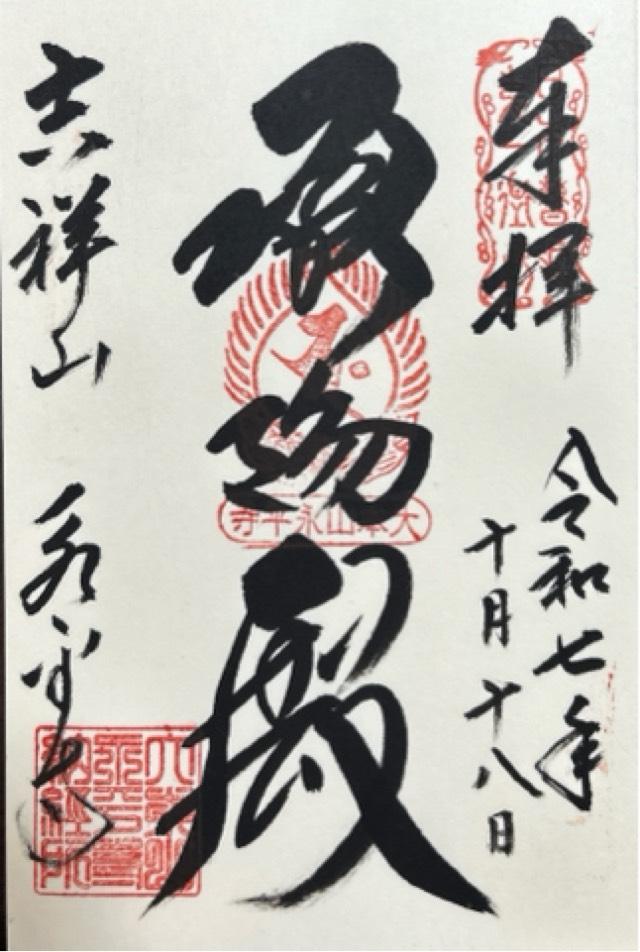 奉拝
令和七年
十月十八日
承陽殿
大本山永平寺
吉祥山 永平寺